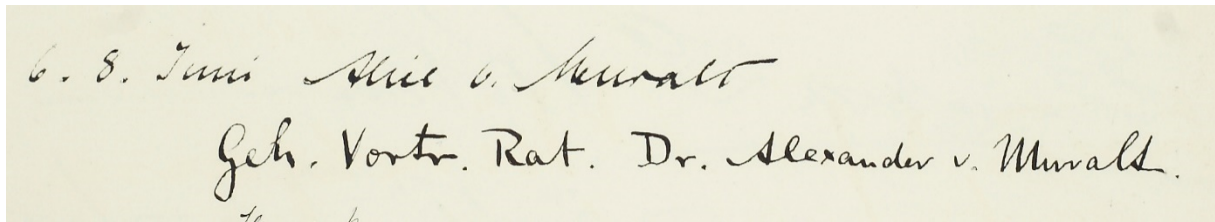 6. 8. Juni Alice v. Muralt
Geh. Vortr. Rat. Dr. Alexander v. Muralt.